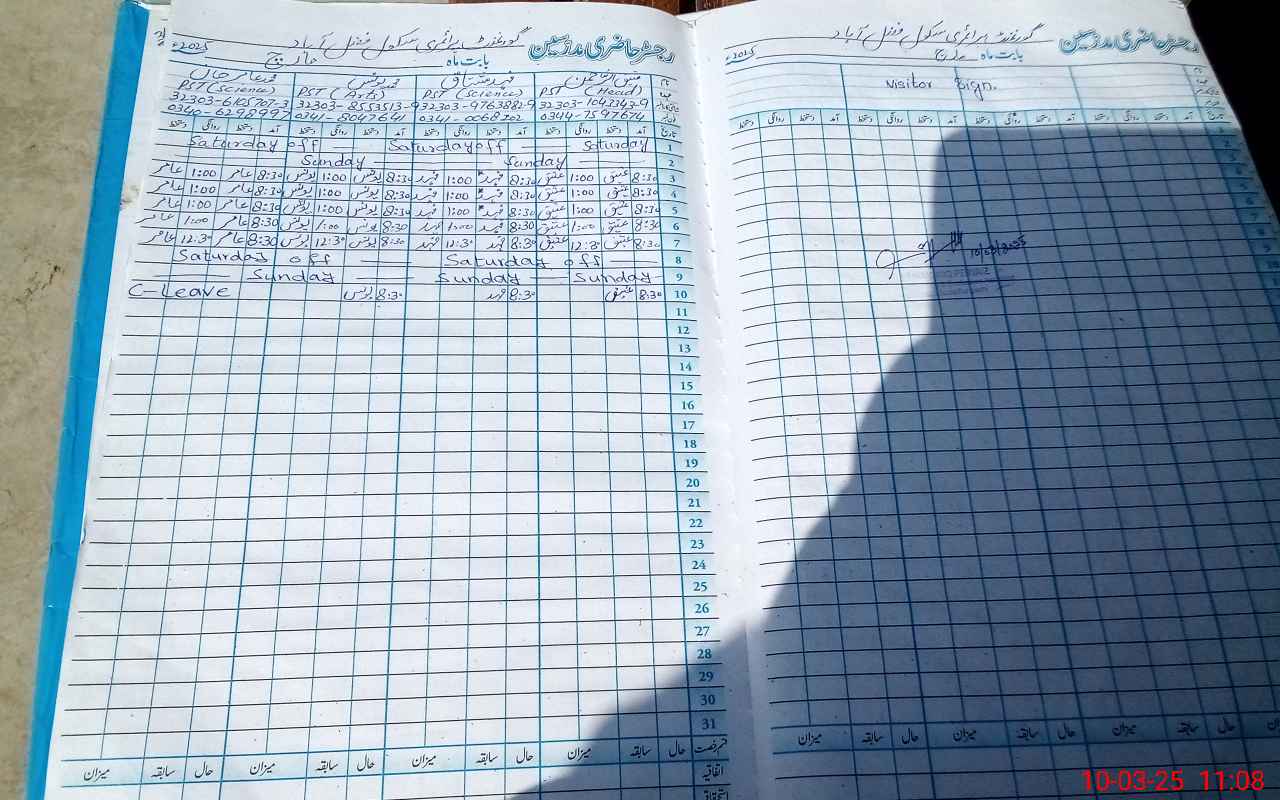 رجسٹر حاضری مدرسین گورنمنٹ پرائمری سکول فضل آباد
بابت ماہ مارچ 2025ء
عتیق الرحمن فہد مشتاق محمد یونس محمد عامر خان
PST (Head) PST (Science) PST (Arts) PST (Science)
32303-1043343-9 32303-9763882-9 32303-8553513-9 32303-6105707-3
0344-7597674 0341-0068202 0341-8047641 0340-6298997
تاریخ آمد دستخط روانگی دستخط آمد دستخط روانگی دستخط آمد دستخط روانگی دستخط آمد دستخط روانگی دستخط
1 Saturday Saturday off Saturday off
2 Sunday Sunday
3 8:30 عتیق 1:00 عتیق 8:30 فہد 1:00 فہد 8:30 یونس 1:00 یونس 8:30 عامر 1:00 عامر
4 8:30 عتیق 1:00 عتیق 8:30 فہد 1:00 فہد 8:30 یونس 1:00 یونس 8:30 عامر 1:00 عامر
5 8:30 عتیق 1:00 عتیق 8:30 فہد 1:00 فہد 8:30 یونس 1:00 یونس 8:30 عامر 1:00 عامر
6 8:30 عتیق 1:00 عتیق 8:30 فہد 1:00 فہد 8:30 یونس 1:00 یونس 8:30 عامر 1:00 عامر
7 8:30 عتیق 12:30 عتیق 8:30 فہد 12:30 فہد 8:30 یونس 12:30 یونس 8:30 عامر 12:30 عامر
8 Saturday off Saturday off
9 Sunday Sunday Sunday
10 8:30 عتیق 8:30 فہد 8:30 یونس C-Leave
11
12
13
14
15
16
17
18
19
20
21
22
23
24
25
26
27
28
29
30
31
قسم رخصت حال سابقہ میزان حال سابقہ میزان حال سابقہ میزان حال سابقہ میزان
اتفاقیہ
استحقاقی
رجسٹر حاضری مدرسین گورنمنٹ پرائمری سکول فضل آباد
بابت ماہ مارچ 2025ء
visitor Sign.
تاریخ آمد دستخط روانگی دستخط آمد دستخط روانگی دستخط آمد دستخط روانگی دستخط آمد دستخط روانگی دستخط
10/03/2025
حال سابقہ میزان حال سابقہ میزان حال سابقہ میزان
10-03-25 11:08